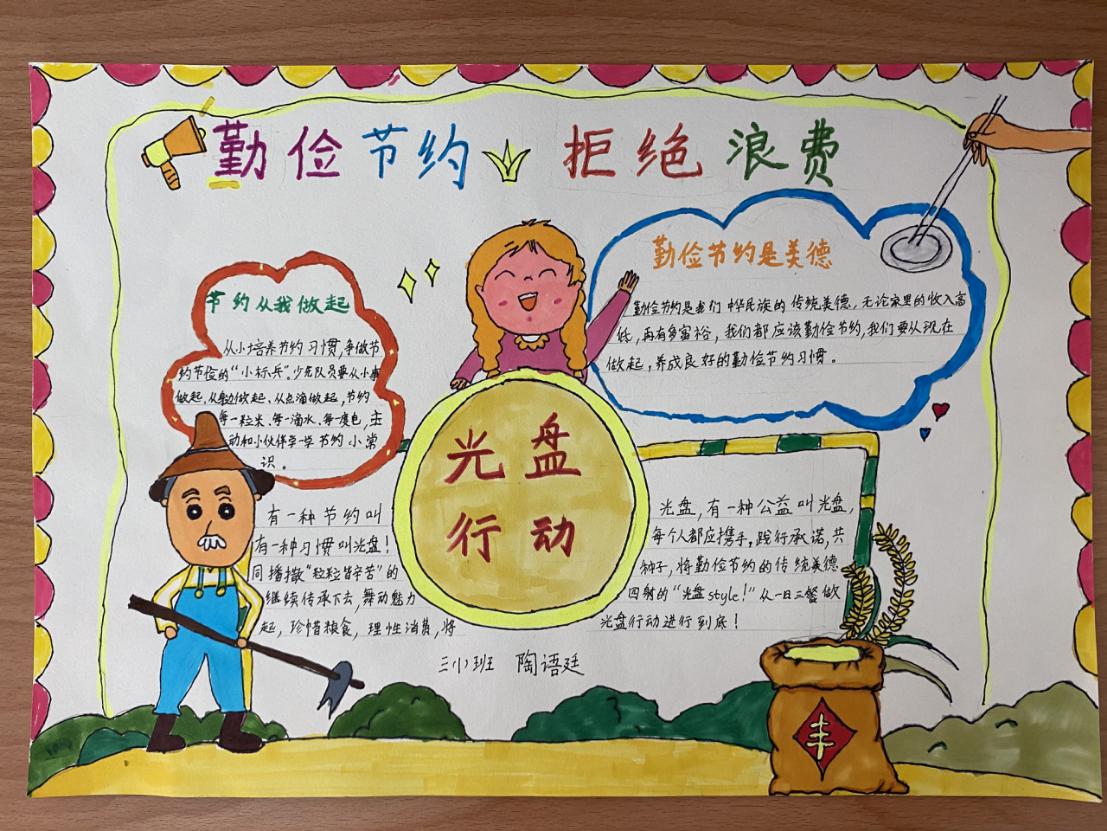 勤俭节约 拒绝浪费
节约从我做起
从小培养节约习惯,争做节
约节俭的“小标兵”。少先队员要从小事
做起、从身边做起、从点滴做起,节约
每一粒米、每一滴水、每一度电,主
动和小伙伴学一学节约小常
识。
勤俭节约是美德
勤俭节约是我们中华民族的传统美德,无论家里的收入高
低,再有多富裕,我们都应该勤俭节约,我们要从现在
做起,养成良好的勤俭节约习惯。
光盘
行动
有一种节约叫 光盘,有一种公益叫光盘,
有一种习惯叫光盘! 每个人都应携手,践行承诺,共
同播撒“粒粒皆辛苦”的 种子,将勤俭节约的传统美德
继续传承下去,舞动魅力 四射的“光盘style!”从一日三餐做
起,珍惜粮食,理性消费,将 光盘行动进行到底!
三(1)班 陶语廷
丰